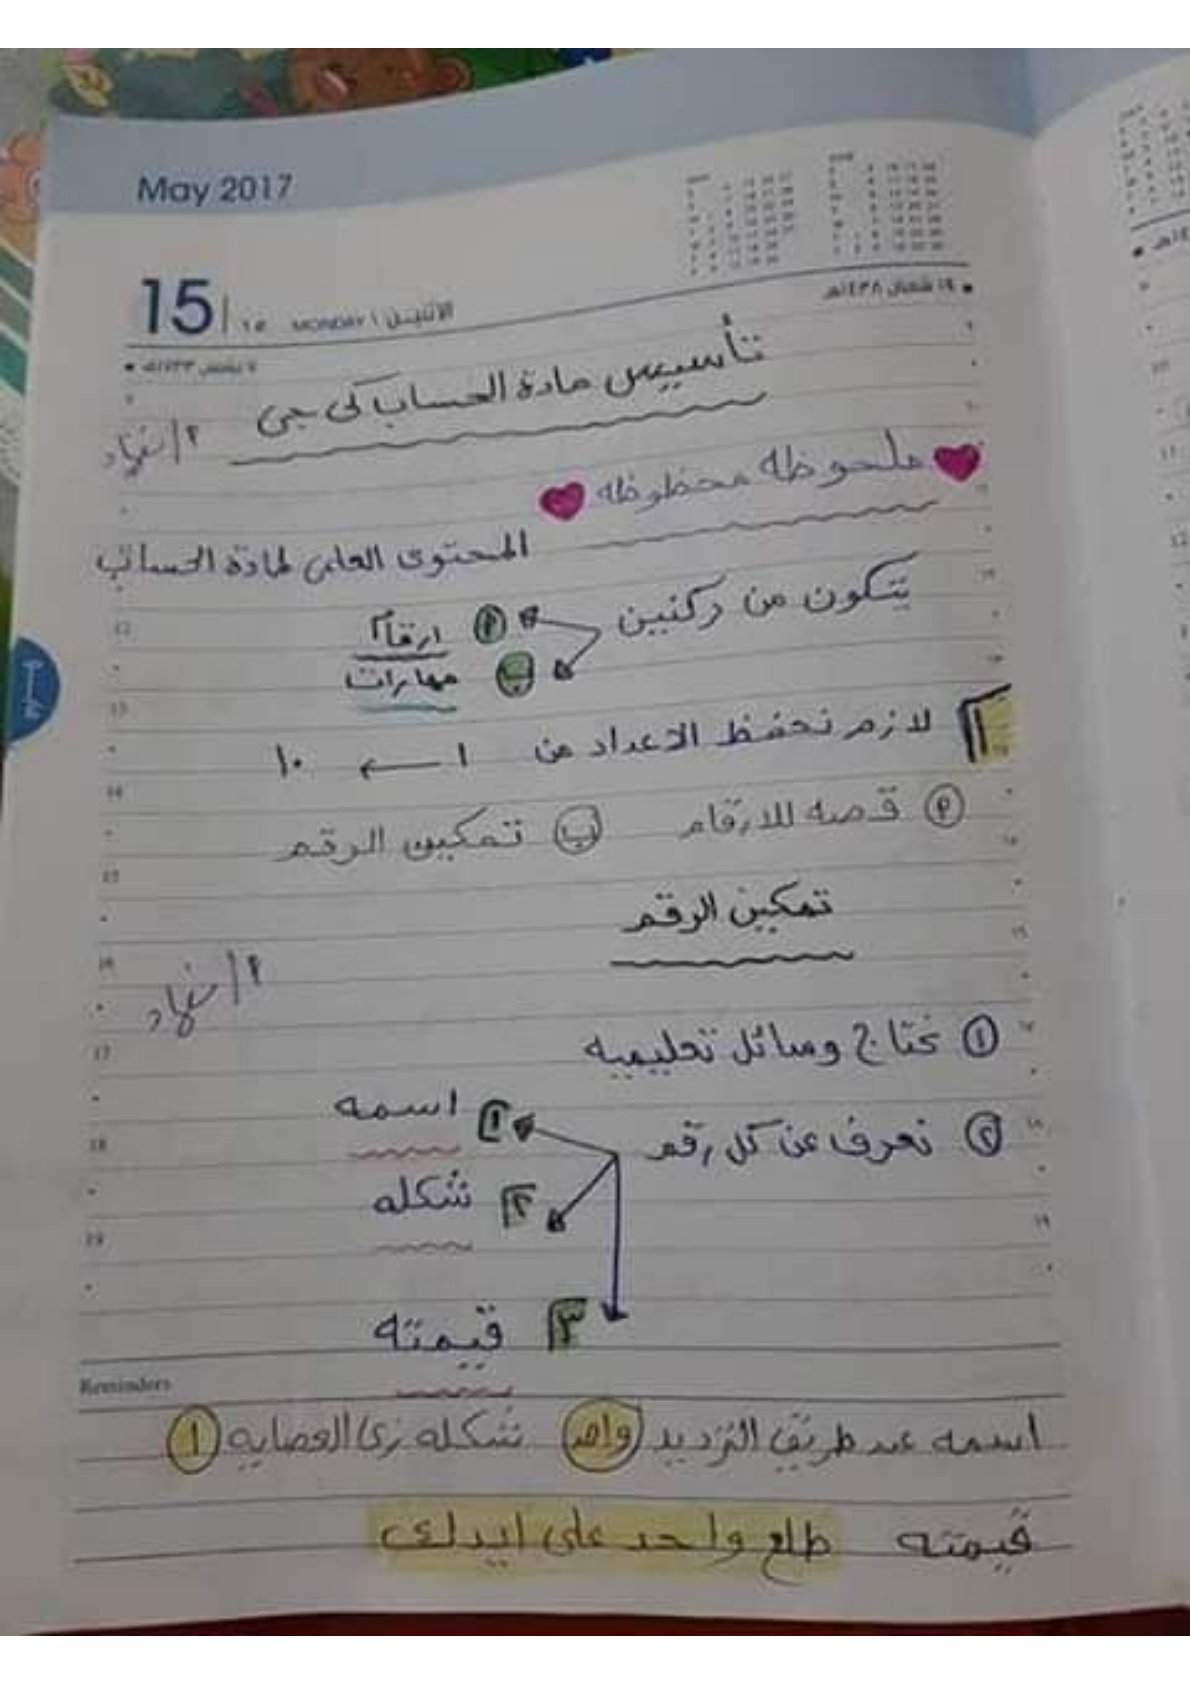 May 2017
15 ١٥ MONDAY الاثنيــن
١٩ شعبان ١٤٣٨هـ
تأسيس مادة الحساب كى جى
أ/ نهاد
ملحوظه محظوظه
المحتوى العلمى لمادة الحساب
يتكون من ركنين
أ ارقام
ب مهارات
١ لازم نحفظ الاعداد من ١ ← ١٠
أ قصه للارقام ب تمكين الرقم
تمكين الرقم
أ/ نهاد
١ نحتاج وسائل تعليميه
٢ نعرف عن كل رقم
١ اسمه
٢ شكله
٣ قيمته
Reminders
اسمه عند طريق الترديد واحد شكله زى العصايه ١
قيمته طلع واحد على ايدك